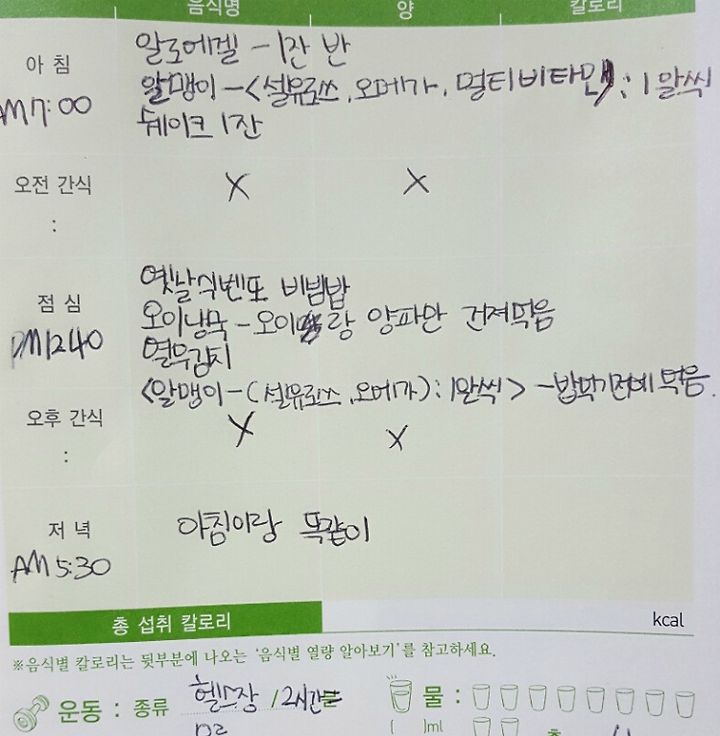 음식명 양 칼로리
아 침 알로에겔 - 1잔 반
AM 7:00 알맹이 - < 셀유로쓰, 오메가, 멀티비타민 : 1알씩
쉐이크 1잔
오전 간식 X X
:
점 심 옛날쉭벤또 비빔밥
PM 12:40 오이냉국 - 오이랑 양파만 건져먹음
열무김치
<알맹이 - (셀유로쓰, 오메가) : 1알씩> - 밥먹기전에 먹음.
오후 간식 X X
:
저 녁 아침이랑 똑같이
AM 5:30
총 섭취 칼로리 kcal
※음식별 칼로리는 뒷부분에 나오는 '음식별 열량 알아보기'를 참고하세요.
운동 : 종류 헬스장 / 2시간 물 :
( )ml